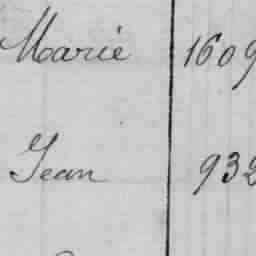 Marie 1609
Jean 932